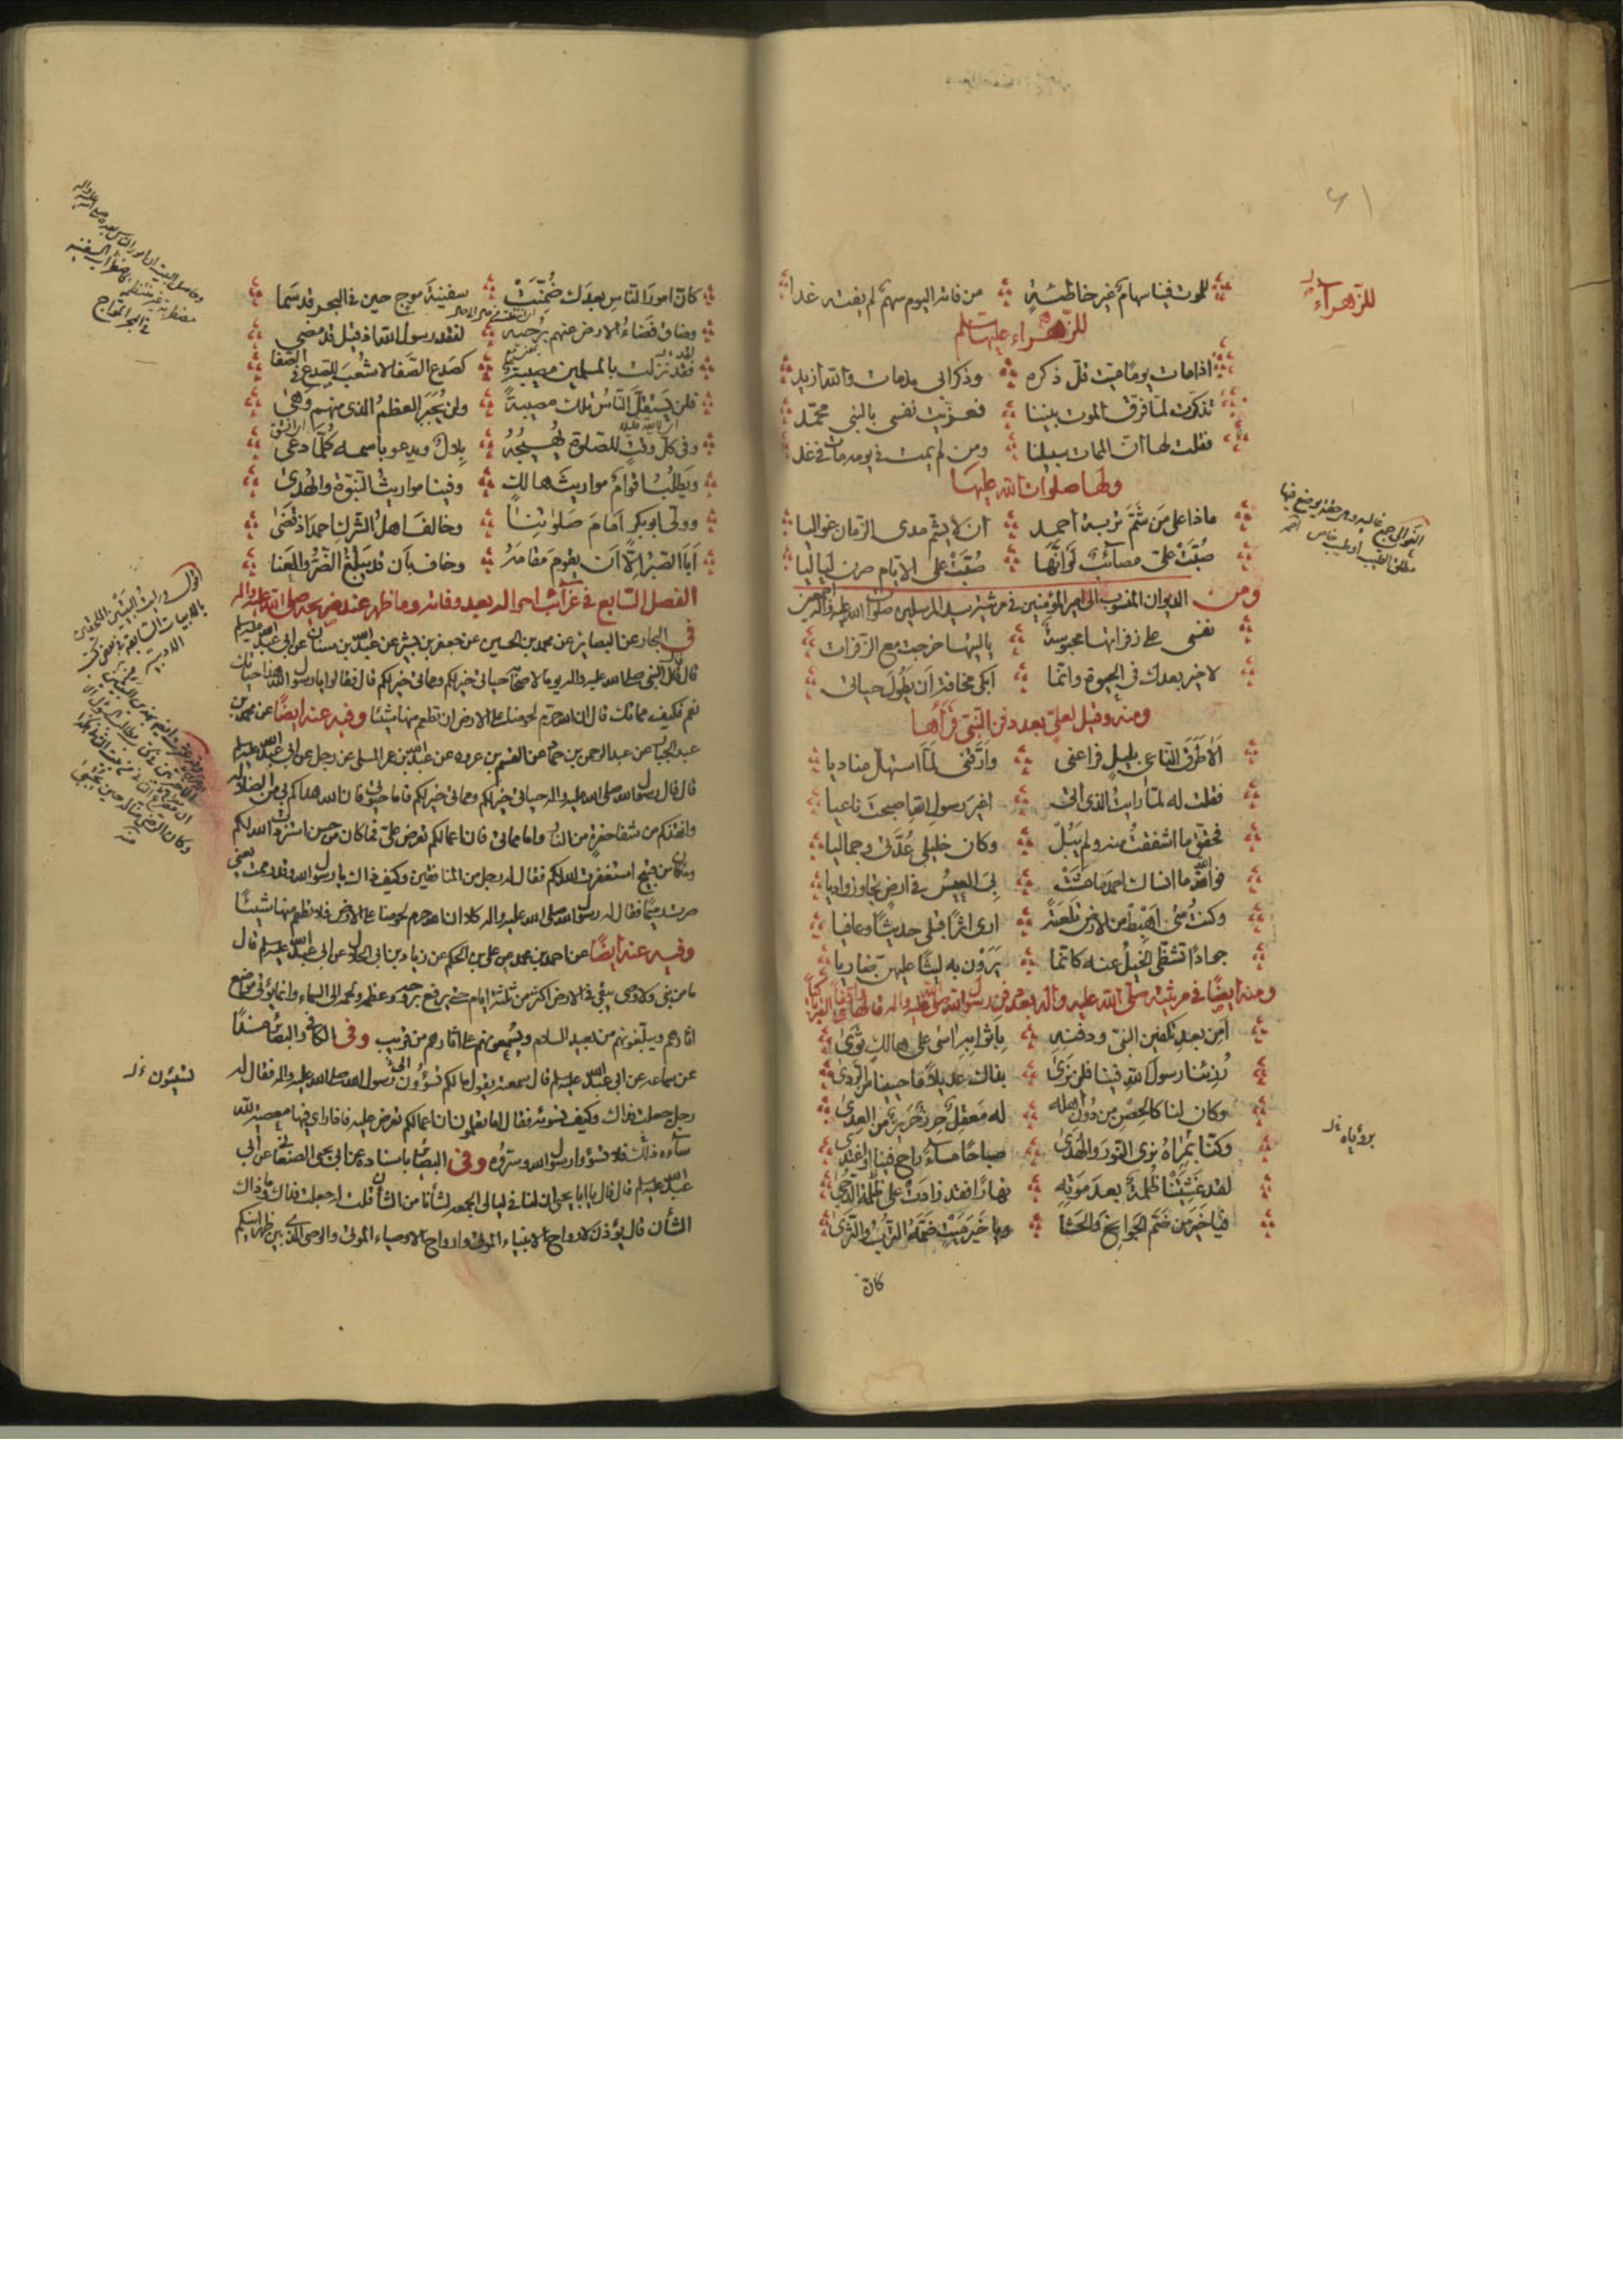 للموت فينا سهام غير خاطئة من فاته اليوم سهم لم يفته غدا
للزهراء عليها سلم
اذا مات يوما ميت قل ذكره وذكر ابي مذ مات والله ازيد
تذكرت لما فرق الموت بيننا فعزيت نفسي بالنبي محمد
فقلت لها ان الممات سبيلنا ومن لم يمت في يومه مات في غد
ولها صلوات الله عليها
ماذا على من شم تربة احمد ان لا يشم مدى الزمان غواليا
صبت على مصائب لو انها صبت على الايام صرن لياليا
ومن الديوان المنسوب الى امير المؤمنين في مرثية سيد المرسلين صلوات الله عليه واله اجمعين
نفسي على زفراتها محبوسة ياليتها خرجت مع الزفرات
لا خير بعدك في الحيوة وانما ابكي مخافة ان يطول حياتي
ومنه وقيل لعلي بعد دفن النبي قرأها
الا طرق الناعي بليل فراعني وارقني لما استهل مناديا
فقلت له لما رايت الذي اتى اغير رسول الله اصبحت ناعيا
فحقق ما اشفقت منه ولم يبل وكان خليلي عدتي وجماليا
فوالله ما انساك احمد ما مشت بي العيس في ارض تجاوز واديا
وكنت متى اهبط من الارض تلعة ارى اثرا قبلي حديثا وعافيا
جوادا تشظى الخيل عنه كانما يرون به ليثا عليهن ضاريا
ومنه ايضا في مرثيته صلى الله عليه واله بعد دفن رسول الله صلى الله عليه واله
امن بعد تكفين النبي ودفنه باثوابه اسى على هالك ثوى
رزئنا رسول الله فينا فلن نرى بذاك عديلا ما حيينا من الردى
وكان لنا كالحصن من دون اهله له معقل حرز حريز من العدى
وكنا بمراه نرى النور والهدى صباحا مساء راح فينا او اغتدى
لقد غشيتنا ظلمة بعد موته نهارا فقد زادت على ظلمة الدجى
فيا خير من ضم الجوانح والحشا ويا خير ميت ضمه الترب والثرى
كان
للزهراء
كان امور الناس بعدك ضمنت سفينة موج حين في البحر قد سما
وضاق فضاء الارض عنهم برحبه لفقد رسول الله اذ قيل قد مضى
فقد نزلت بالمسلمين مصيبة كصدع الصفا لا شعب للصدع في الصفا
فلن يستقل الناس تلك مصيبة ولن يجبر العظم الذي منهم وهى
وفي كل وقت للصلوة يهيجه بلال ويدعو باسمه كلما دعى
ويطلب اقوام مواريث هالك وفينا مواريث النبوة والهدى
وولى ابو بكر امام صلوتنا وخالف اهل الشرك احمد اذ قضى
ابا الصبر الا ان يقوم مقامه وخاف بان قد يبلغ الضر والعنا
الفصل السابع في غرائب احواله بعد وفاته وما ظهر عند ضريحه صلى الله عليه واله
في البحار عن البصاير عن محمد بن الحسين عن جعفر بن بشير عن عبد الله بن سنان عن ابي عبد الله عليه سلم
قال قال النبي صلى الله عليه واله يوما لاصحابه حياتي خير لكم ومماتي خير لكم قال فقالوا يا رسول الله هذا حياتك
نعم فكيف مماتك قال ان الله حرم لحومنا على الارض ان تطعم منها شيئا وفيه عنه ايضا عن محمد بن
عبد الجبار عن عبد الرحمن بن حماد عن القسم بن عروه عن عبد الله بن عمر المسلي عن رجل عن ابي عبد الله عليه سلم
قال قال رسول الله صلى الله عليه واله حياتي خير لكم ومماتي خير لكم فاما حيوتي فان الله هداكم بي من الضلالة
وانقذكم من شفا حفرة من النار واما مماتي فان اعمالكم تعرض علي فما كان من حسن استزدت الله لكم
وما كان من قبيح استغفرت الله لكم فقال له رجل من المنافقين وكيف ذاك يا رسول الله وقد رممت يعني
صرت رميما فقال له رسول الله صلى الله عليه واله كلا ان الله حرم لحومنا على الارض فلا تطعم منها شيئا
وفيه عنه ايضا عن احمد بن محمد عن علي بن الحكم عن زياد بن ابي الحلال عن ابي عبد الله عليه سلم قال
ما من نبي ولا وصي يبقى في الارض اكثر من ثلثة ايام حتى يرفع بروحه وعظمه ولحمه الى السماء وانما يؤتى مواضع
اثارهم ويبلغونهم من بعيد السلام ويسمعونهم على اثارهم من قريب وفي الكافي والبصائر مسندا
عن سماعه عن ابي عبد الله عليه سلم قال سمعته يقول ما لكم تسوؤن رسول الله صلى الله عليه واله فقال له
رجل جعلت فداك وكيف نسوئه فقال اما تعلمون ان اعمالكم تعرض عليه فاذا راى فيها معصية لله
ساءه ذلك فلا تسوؤا رسول الله وسروه وفي البصائر باسناده عن ابي يحيى الصنعاني عن ابي
عبد الله عليه سلم قال قال يا ابا يحيى ان لنا في ليالي الجمعة لشأنا من الشأن قلت له جعلت فداك وما ذاك
الشأن قال يؤذن لارواح الانبياء الموتى وارواح الاوصياء الموتى والوصي الذي بين ظهرانيكم